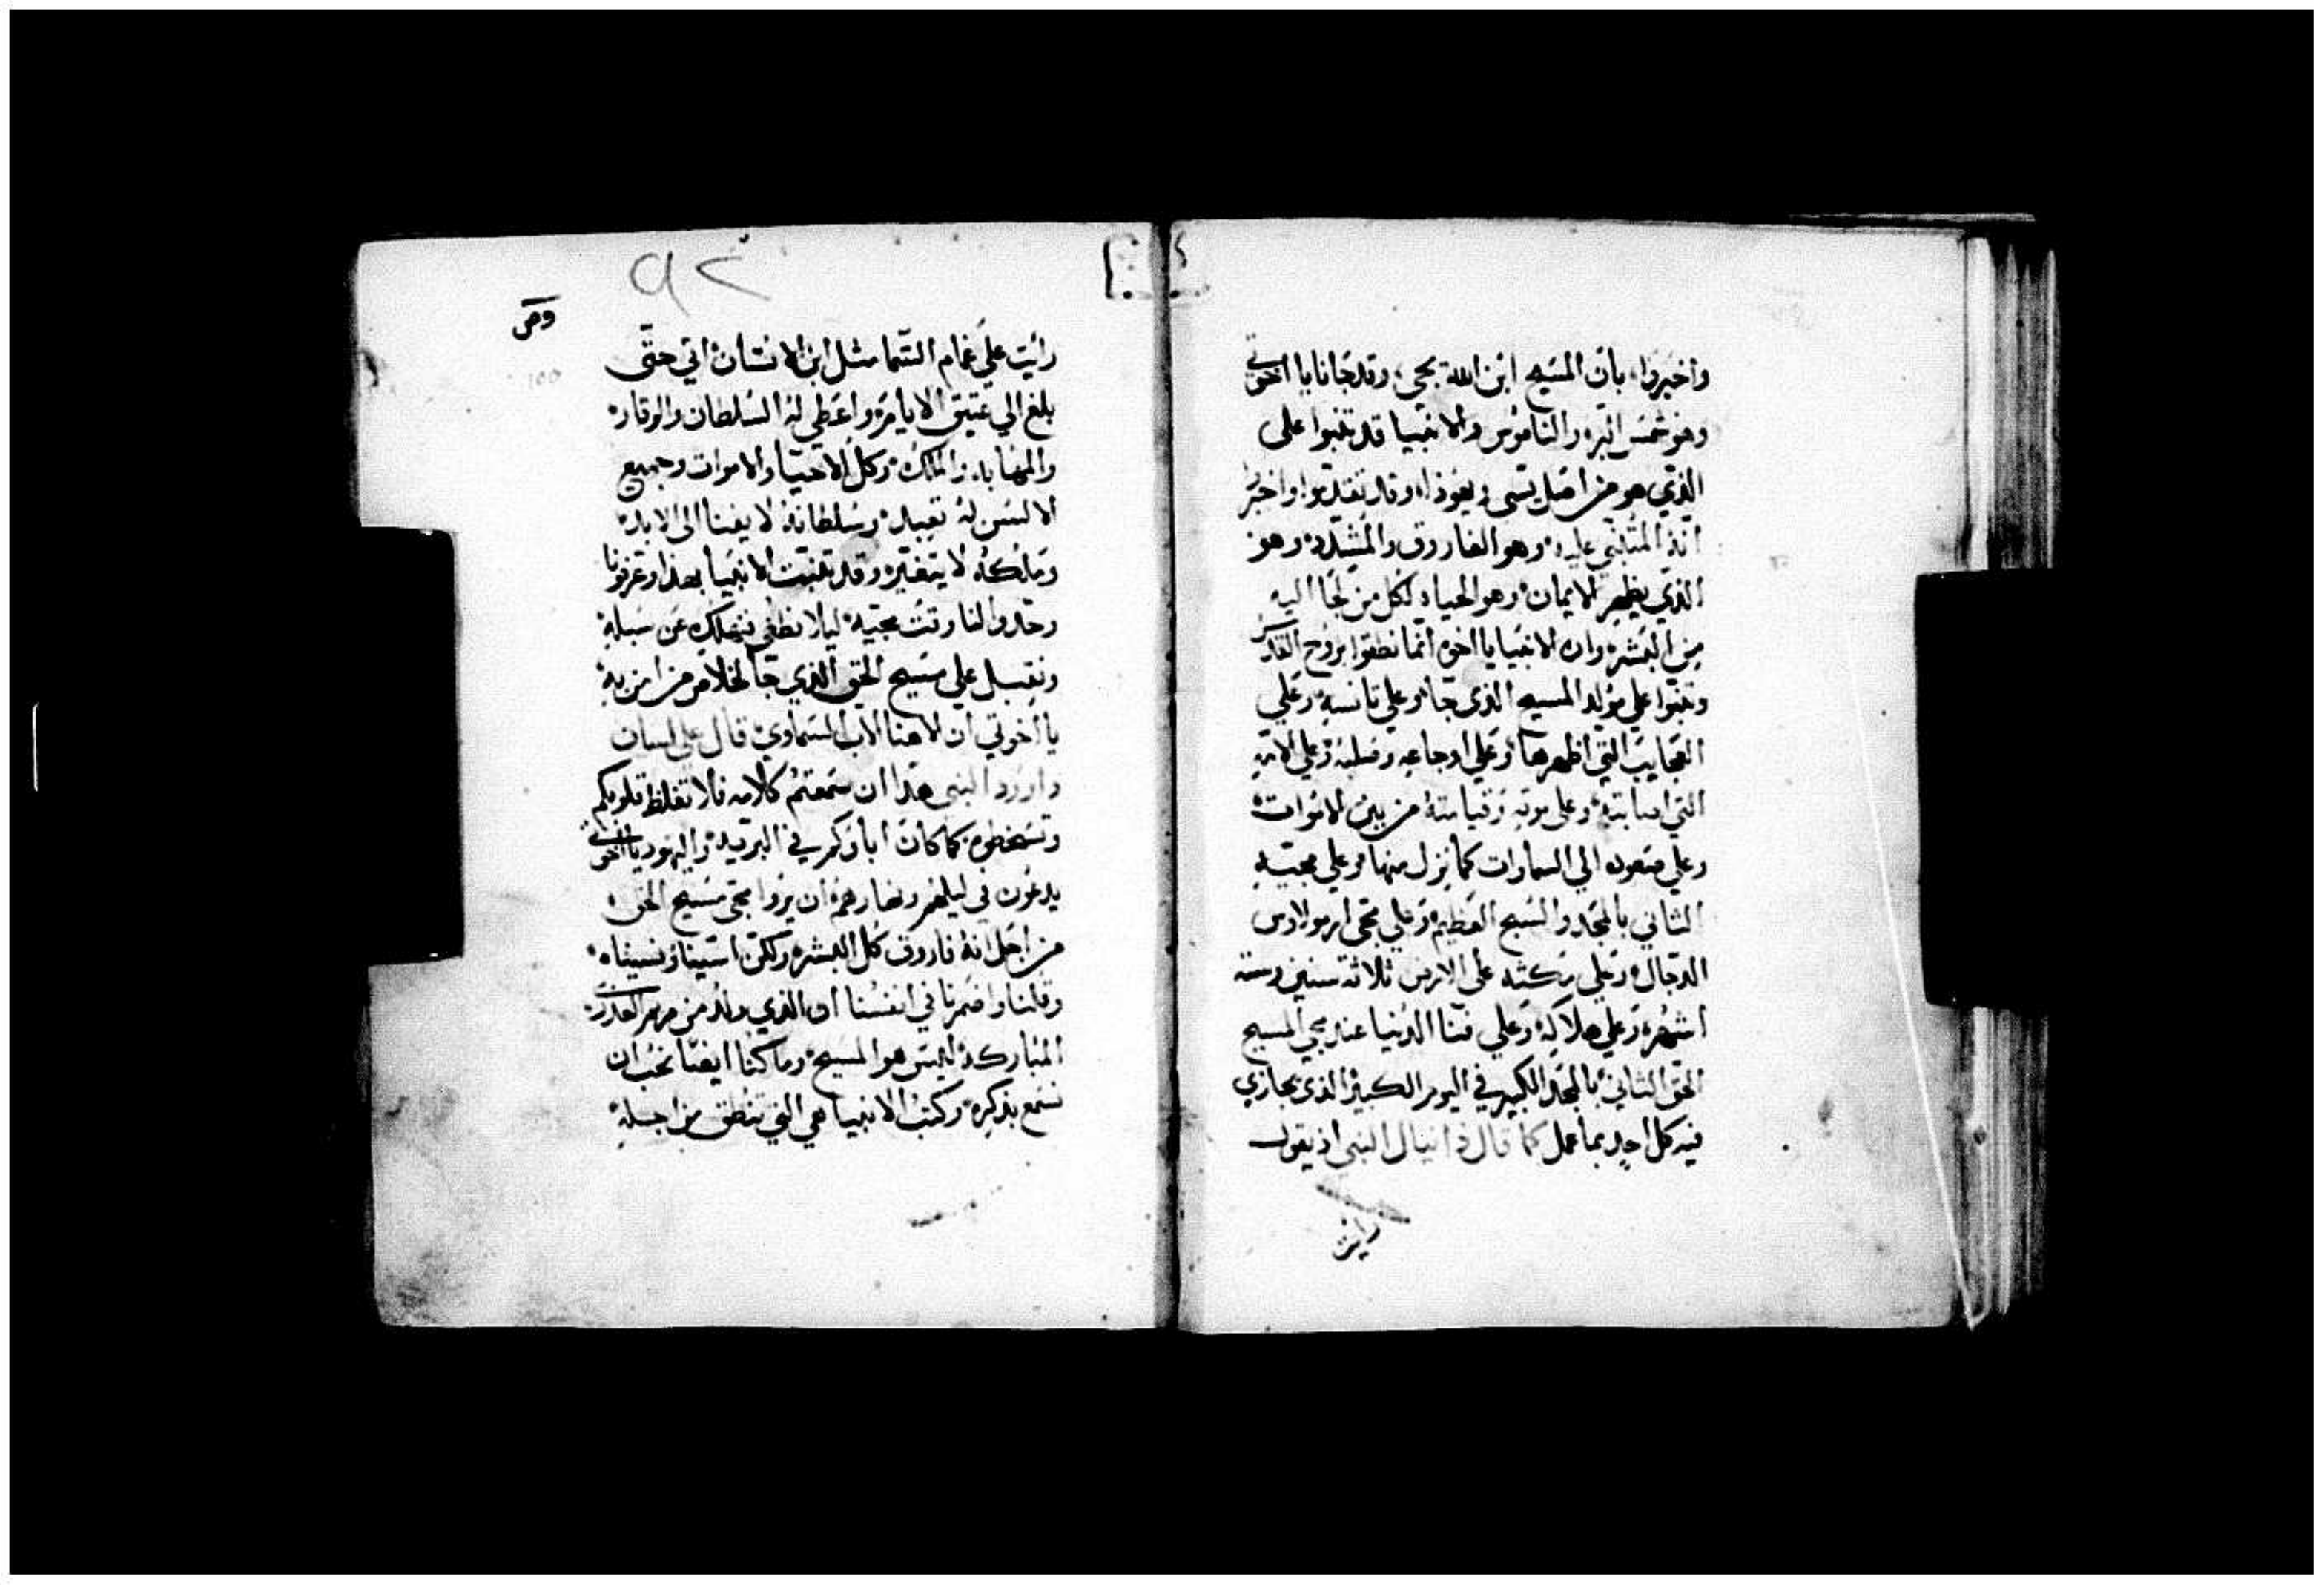 واخبروا بان المسيح ابن الله يجي وقد جانا يا اخوتي
وهو شمس البر والناموس والانبيا قد تنبوا على
الذي هو من اصل يسى ويعوذا وقد تقدموا واخبروا
انه المتنبي عليه وهو الفاروق والمشدد وهو
الذي يظهر الايمان وهو الحياه لكل من لجا اليه
من البشر وان الانبيا يا اخوه انما نطقوا بروح القدس
وتنبوا على مولد المسيح الذي جا وعلى تانسه وعلى
العجايب التي اظهرها وعلى اوجاعه وصلبه وعلى الامه
التي اصابته وعلى موته وقيامته من بين الاموات
وعلى صعوده الي السماوات كما نزل منها وعلى مجيه
الثاني بالمجد والسبح العظيم وعلى مجى ارمولاوس
الدجال وعلى مكثه على الارض ثلاثة سنين وستة
اشهر وعلى هلاكه وعلى فنا الدنيا عند مجي المسيح
الحق الثاني بالمجد الكبير في اليوم الكبير الذي يجازي
فيه كل احد بما عمل كما قال دانيال النبي اذ يقول
رايت
٩٢
رايت على غمام السما مثل ابن الانسان اتي حتى
بلغ الي عتيق الايام واعطي له السلطان والوقار
والمهابه والملك وكل الاحيا والاموات وجميع
الالسن له تعبد وسلطانه لا يفنا الى الابد
وملكه لا يتغير وقد تنبت الانبيا بهذا وعرفونا
وحدوا لنا وقت مجيه ليلا نطغى فنهلك عن سبله
ونقبل على مسيح الحق الذي جا لخلاص من امن به
يا اخوتي ان الاهنا الاب السماوي قال على لسان
داوود النبي هذا ان سمعتم كلامه فلا تغلظ قلوبكم
وتسخطوه كما كان اباوكم في البريه واليهود يا اخوتي
يدعون في ليلهم ونهارهم ان يروا مجى مسيح الحق
من اجل انه فاروق كل البشر ولكن اسينا ونسيناه
وقلنا واضمرنا في انفسنا ان الذي ولد من مريم العذرى
المباركه ليس هو المسيح وما كنا ايضا نحب ان
نسمع بذكره وكتب الانبيا هي التي تنطق من اجله